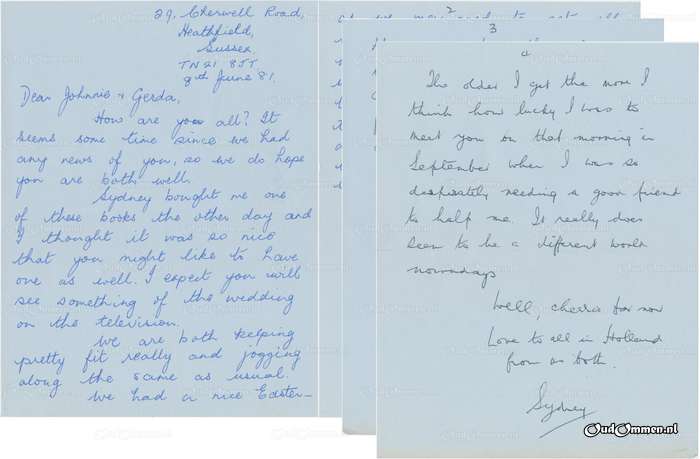 29, Cherwell Road,
Heathfield,
Sussex.
TN21 8JT
9th June 81.
Dear Johnnie + Gerda,
How are you all? It
seems some time since we had
any news of you, so we do hope
you are both well.
Sydney bought me one
of these books the other day and
I thought it was so nice
that you might like to have
one as well. I expect you will
see something of the wedding
on the television.
We are both keeping
pretty fit really and jogging
along the same as usual.
We had a nice Easter—
2
3
4
The older I get the more I
think how lucky I was to
meet you on that morning in
September when I was so
desperately needing a good friend
to help me. It really does
seem to be a different world
nowadays
Well, cheerio for now
Love to all in Holland
from us both.
Sydney
OudOmmen.nl